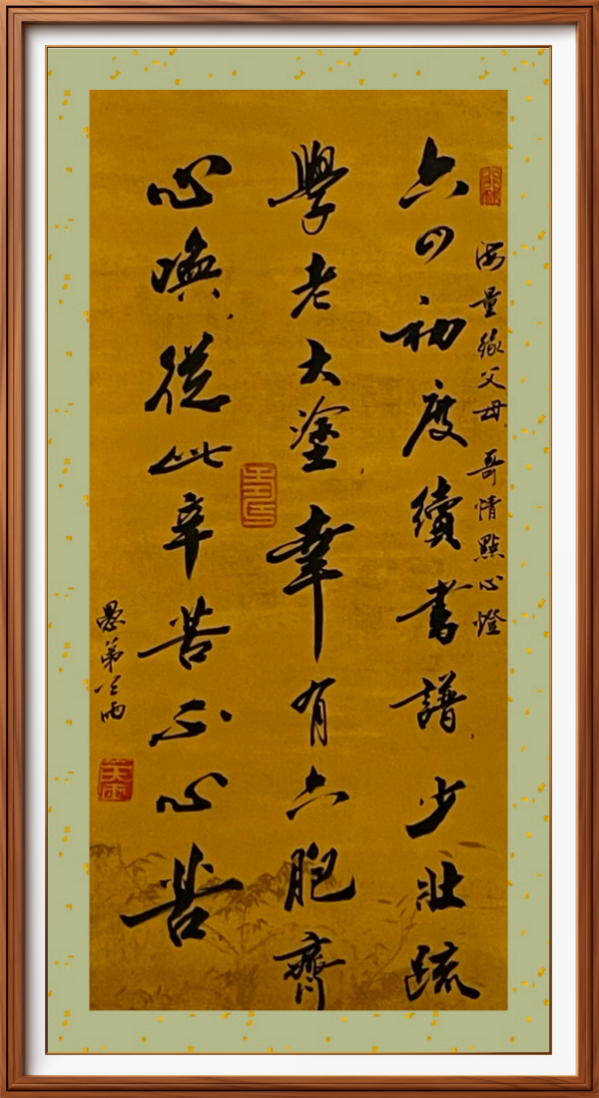 海量緣父母哥情點心燈
六四初度續書譜少壯疏
學老大塗幸有六胞齊
心喚從此辛苦不心苦
愚弟雨